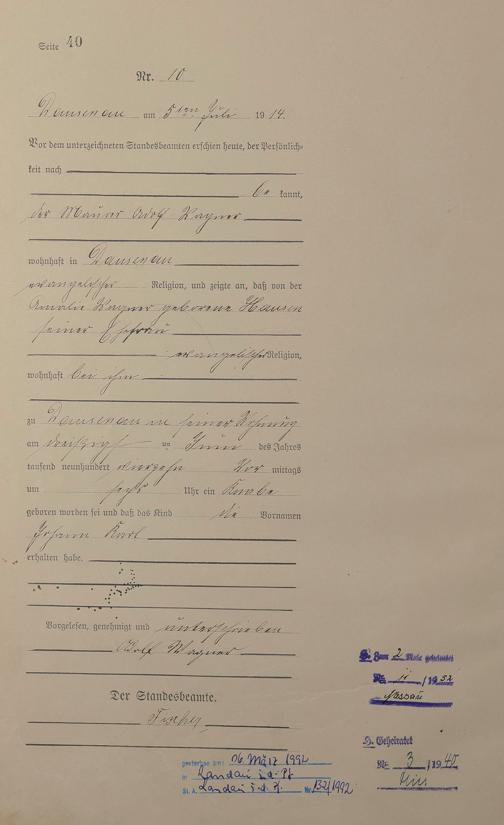 Seite 40
Nr. 10
Dausenau am 5ten Juli 1914.
Vor dem unterzeichneten Standesbeamten erschien heute, der Persönlich-
keit nach
be kannt,
der Maurer Adolf Wagner
wohnhaft in Dausenau
evangelischer Religion, und zeigte an, daß von der
Amalie Wagner geborene Hansen
seiner Ehefrau
evangelischer Religion,
wohnhaft bei ihm
zu Dausenau in seiner Wohnung
am dreißigsten Juni des Jahres
tausend neunhundert vierzehn Vor mittags
um sechs Uhr ein Knabe
geboren worden sei und daß das Kind die Vornamen
Johann Karl
erhalten habe.
Vorgelesen, genehmigt und unterschrieben
Adolf Wagner
Der Standesbeamte.
Zum 2 Male geheiratet
Nr. 11 /1952
Nassau
Geheiratet
Nr. 3 /1940
gestorben am: 06. März 1992
in Landau i.d. Pf.
St. A. Landau i.d. Pf. Nr. 132/1992